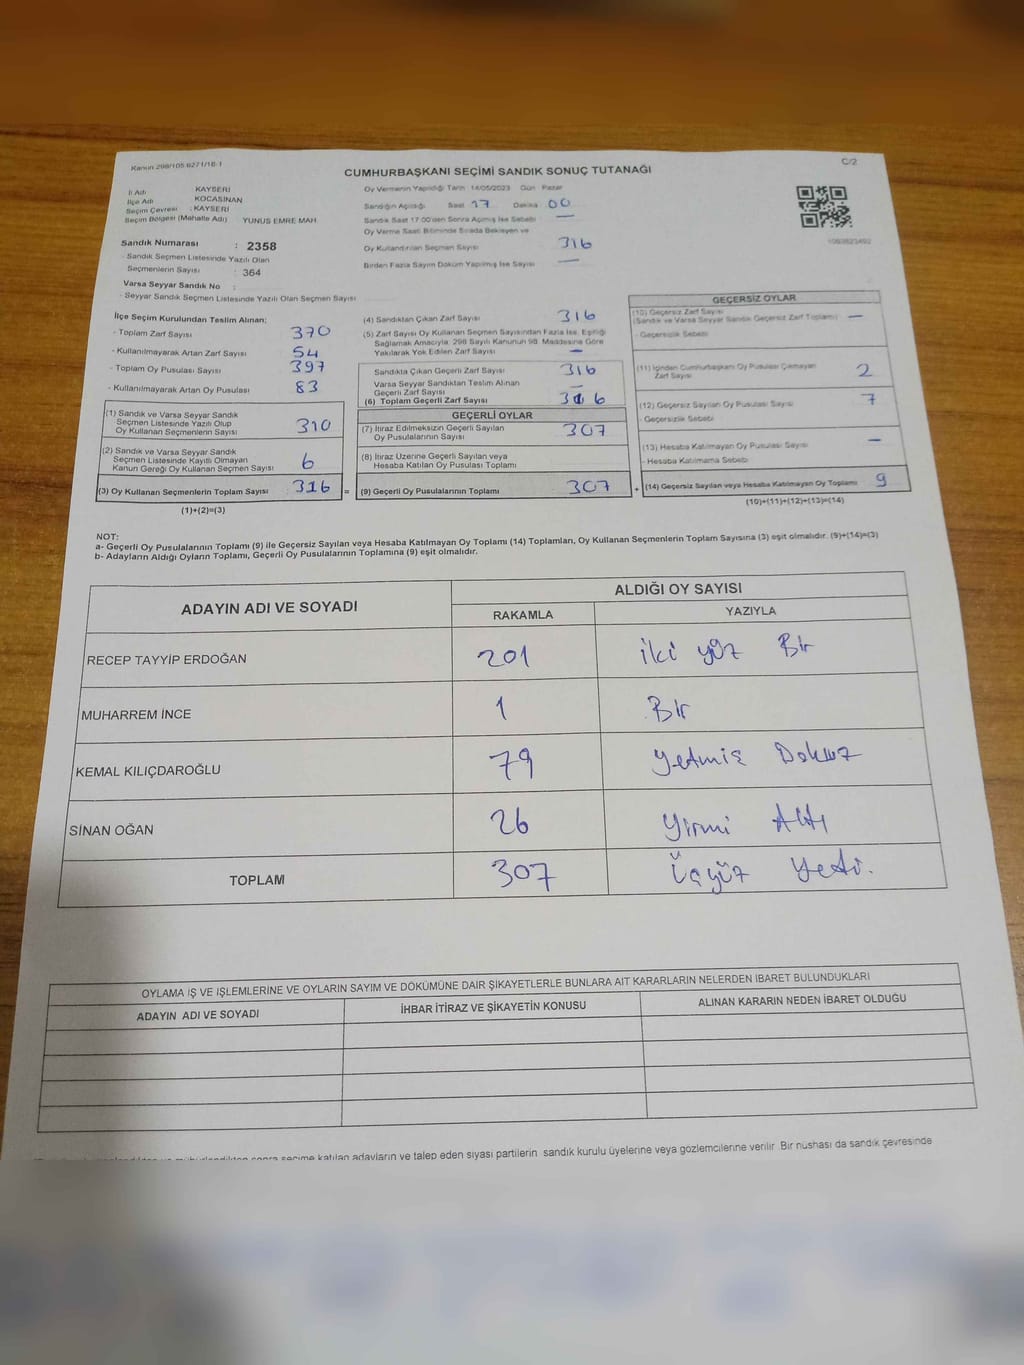 Kanun 298/105 6271/18-1
C/2
CUMHURBAŞKANI SEÇİMİ SANDIK SONUÇ TUTANAĞI
İl Adı KAYSERİ
İlçe Adı KOCASİNAN
Seçim Çevresi : KAYSERİ
Seçim Bölgesi (Mahalle Adı) YUNUS EMRE MAH.
Oy Vermenin Yapıldığı Tarih 14/05/2023 Gün Pazar
Sandığın Açıldığı Saat 17 Dakika 00
Sandık Saat 17 00'den Sonra Açılmış İse Sebebi —
Oy Verme Saati Bitiminde Sırada Bekleyen ve
Oy Kullandırılan Seçmen Sayısı 316
Birden Fazla Sayım Döküm Yapılmış İse Sayısı —
Sandık Numarası : 2358
- Sandık Seçmen Listesinde Yazılı Olan
Seçmenlerin Sayısı : 364
Varsa Seyyar Sandık No :
- Seyyar Sandık Seçmen Listesinde Yazılı Olan Seçmen Sayısı
İlçe Seçim Kurulundan Teslim Alınan:
- Toplam Zarf Sayısı 370
- Kullanılmayarak Artan Zarf Sayısı 54
- Toplam Oy Pusulası Sayısı 397
- Kullanılmayarak Artan Oy Pusulası 83
(1) Sandık ve Varsa Seyyar Sandık
Seçmen Listesinde Yazılı Olup
Oy Kullanan Seçmenlerin Sayısı 310
(2) Sandık ve Varsa Seyyar Sandık
Seçmen Listesinde Kayıtlı Olmayan
Kanun Gereği Oy Kullanan Seçmen Sayısı 6
(3) Oy Kullanan Seçmenlerin Toplam Sayısı 316 =
(1)+(2)=(3)
(4) Sandıktan Çıkan Zarf Sayısı 316
(5) Zarf Sayısı Oy Kullanan Seçmen Sayısından Fazla İse, Eşitliği
Sağlamak Amacıyla, 298 Sayılı Kanunun 98. Maddesine Göre
Yakılarak Yok Edilen Zarf Sayısı —
Sandıkta Çıkan Geçerli Zarf Sayısı 316
Varsa Seyyar Sandıktan Teslim Alınan
Geçerli Zarf Sayısı —
(6) Toplam Geçerli Zarf Sayısı 316
GEÇERLİ OYLAR
(7) İtiraz Edilmeksizin Geçerli Sayılan
Oy Pusulalarının Sayısı 307
(8) İtiraz Üzerine Geçerli Sayılan veya
Hesaba Katılan Oy Pusulası Toplamı
(9) Geçerli Oy Pusulalarının Toplamı 307 +
GEÇERSİZ OYLAR
(10) Geçersiz Zarf Sayısı
(Sandık ve Varsa Seyyar Sandık Geçersiz Zarf Toplamı) —
- Geçersizlik Sebebi
(11) İçinden Cumhurbaşkanı Oy Pusulası Çıkmayan
Zarf Sayısı 2
(12) Geçersiz Sayılan Oy Pusulası Sayısı 7
- Geçersizlik Sebebi
(13) Hesaba Katılmayan Oy Pusulası Sayısı —
- Hesaba Katılmama Sebebi
(14) Geçersiz Sayılan veya Hesaba Katılmayan Oy Toplamı 9
(10)+(11)+(12)+(13)=(14)
NOT:
a- Geçerli Oy Pusulalarının Toplamı (9) ile Geçersiz Sayılan veya Hesaba Katılmayan Oy Toplamı (14) Toplamları, Oy Kullanan Seçmenlerin Toplam Sayısına (3) eşit olmalıdır. (9)+(14)=(3)
b- Adayların Aldığı Oyların Toplamı, Geçerli Oy Pusulalarının Toplamına (9) eşit olmalıdır.
ADAYIN ADI VE SOYADI ALDIĞI OY SAYISI
RAKAMLA YAZIYLA
RECEP TAYYİP ERDOĞAN 201 iki yüz Bir
MUHARREM İNCE 1 Bir
KEMAL KILIÇDAROĞLU 79 yetmiş Dokuz
SİNAN OĞAN 26 yirmi Altı
TOPLAM 307 üçyüz Yedi.
OYLAMA İŞ VE İŞLEMLERİNE VE OYLARIN SAYIM VE DÖKÜMÜNE DAİR ŞİKAYETLERLE BUNLARA AİT KARARLARIN NELERDEN İBARET BULUNDUKLARI
ADAYIN ADI VE SOYADI İHBAR İTİRAZ VE ŞİKAYETİN KONUSU ALINAN KARARIN NEDEN İBARET OLDUĞU
sonra seçime katılan adayların ve talep eden siyasi partilerin sandık kurulu üyelerine veya gözlemcilerine verilir. Bir nüshası da sandık çevresinde